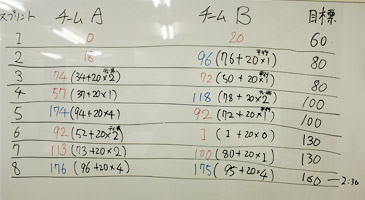 スプリント チームA チームB 目標
1 0 20 60
2 18 96 (76+20×1) 80
3 74 (34+20×2) 72 (50+20×1) 80
4 57 (37+20×1) 118 (78+20×2) 100
5 174 (94+20×4) 92 (72+20×1) 100
6 92 (52+20×2) 1 (1+20×0) 130
7 113 (73+20×2) 100 (80+20×1) 130
8 176 (96+20×4) 175 (95+20×4) 160 — 2:30